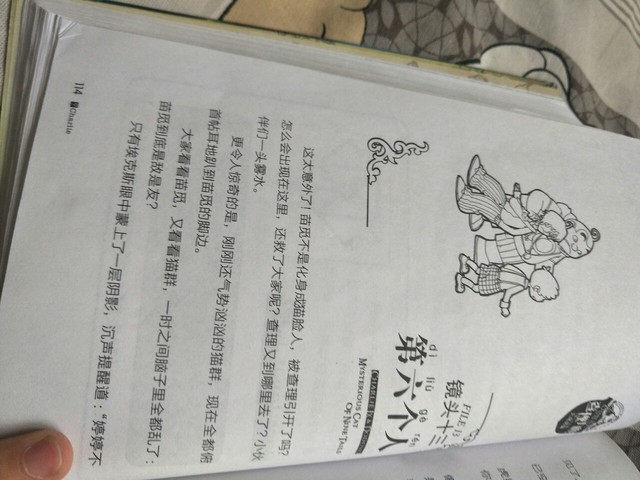 镜头十三
FILE 13
dì liù gè rén
第六个人
MYSTERIOUS CAT
OF NINE TAILS
这太意外了！苗觅不是化身成猫脸人，被查理引开了吗？
怎么会出现在这里，还救了大家呢？查理又到哪里去了？小伙
伴们一头雾水。
更令人惊奇的是，刚刚还气势汹汹的猫群，现在全都俯
首帖耳地趴到苗觅的脚边。
大家看看苗觅，又看看猫群，一时之间脑子里全都乱了：
苗觅到底是敌是友？
只有埃克斯眼中蒙上了一层阴影，沉声提醒道：“婷婷不
114 Charlie